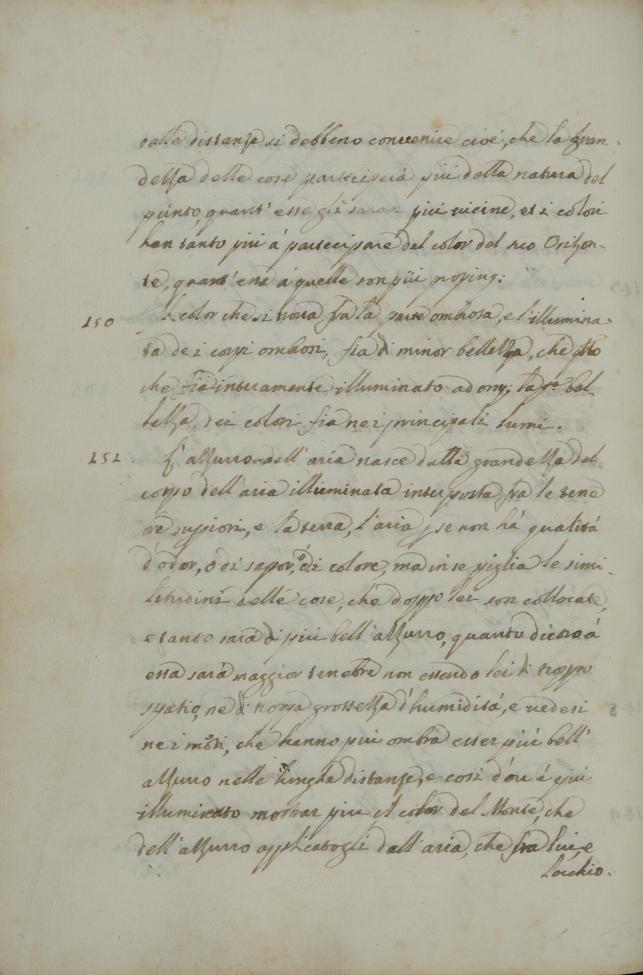 dalle distanze si debbeno convenire cioé, che la gran-
dezza delle cose parteciperá piú della natura del
punto, quant' esse gli saran piú vicine, et i colori
han tanto piú á partecipare del color del suo Orizon-
te, quant' á quelle son piú
150 Il color che si trova fra la parte ombrosa, e l'illumina-
ta de i corpi ombrosi, fia di minor bellezza, che
che fia interamente illuminato adonq; la pa. bel-
lezza dei colori fia nei principali lumi.
151. L'azzurro dell'aria nasce dalla grandezza del
corpo dell'aria illuminata interposta fra le tene
bre superiori, e la terra, l'aria p se non há qualitá
d'odor, o di sapor, o di colore, ma in se piglia le simi-
litudini delle cose, che doppo lei son collocate,
e tanto sará di piú bell'azzurro, quanto dietro á
essa sará maggior tenebre non essendo lei di troppo
spatio, ne di troppa grossezza d'humiditá, e vedesi
ne i mōti, che hanno piú ombra esser piú bell'
azzurro nelle lunghe distanze, e cosi d'ov' é piú
illuminato mostrar piu il color del Monte, che
dell'azzurro applicatogli dall'aria, che fra lui, e
l'occhio.